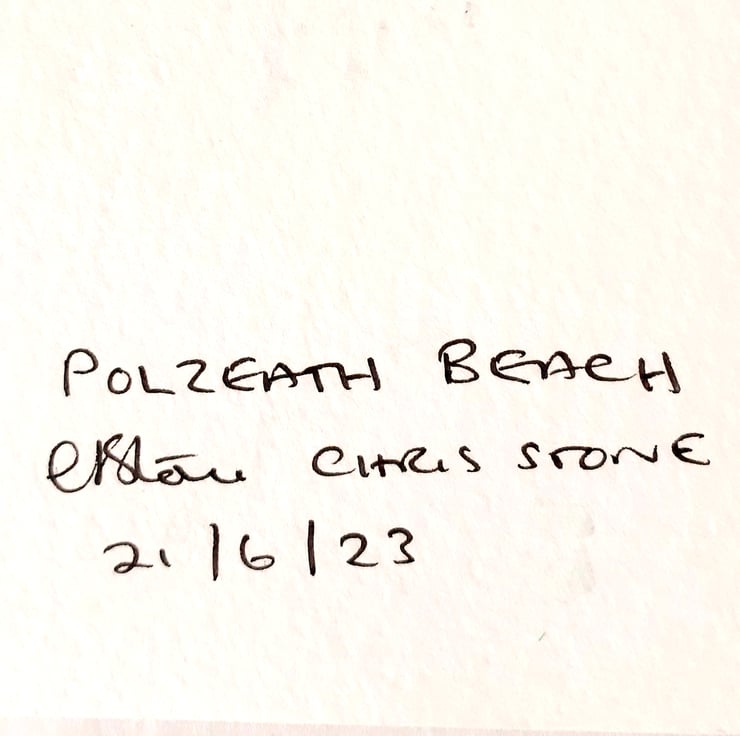 POLZEATH BEACH
CHRIS STONE
21/6/23